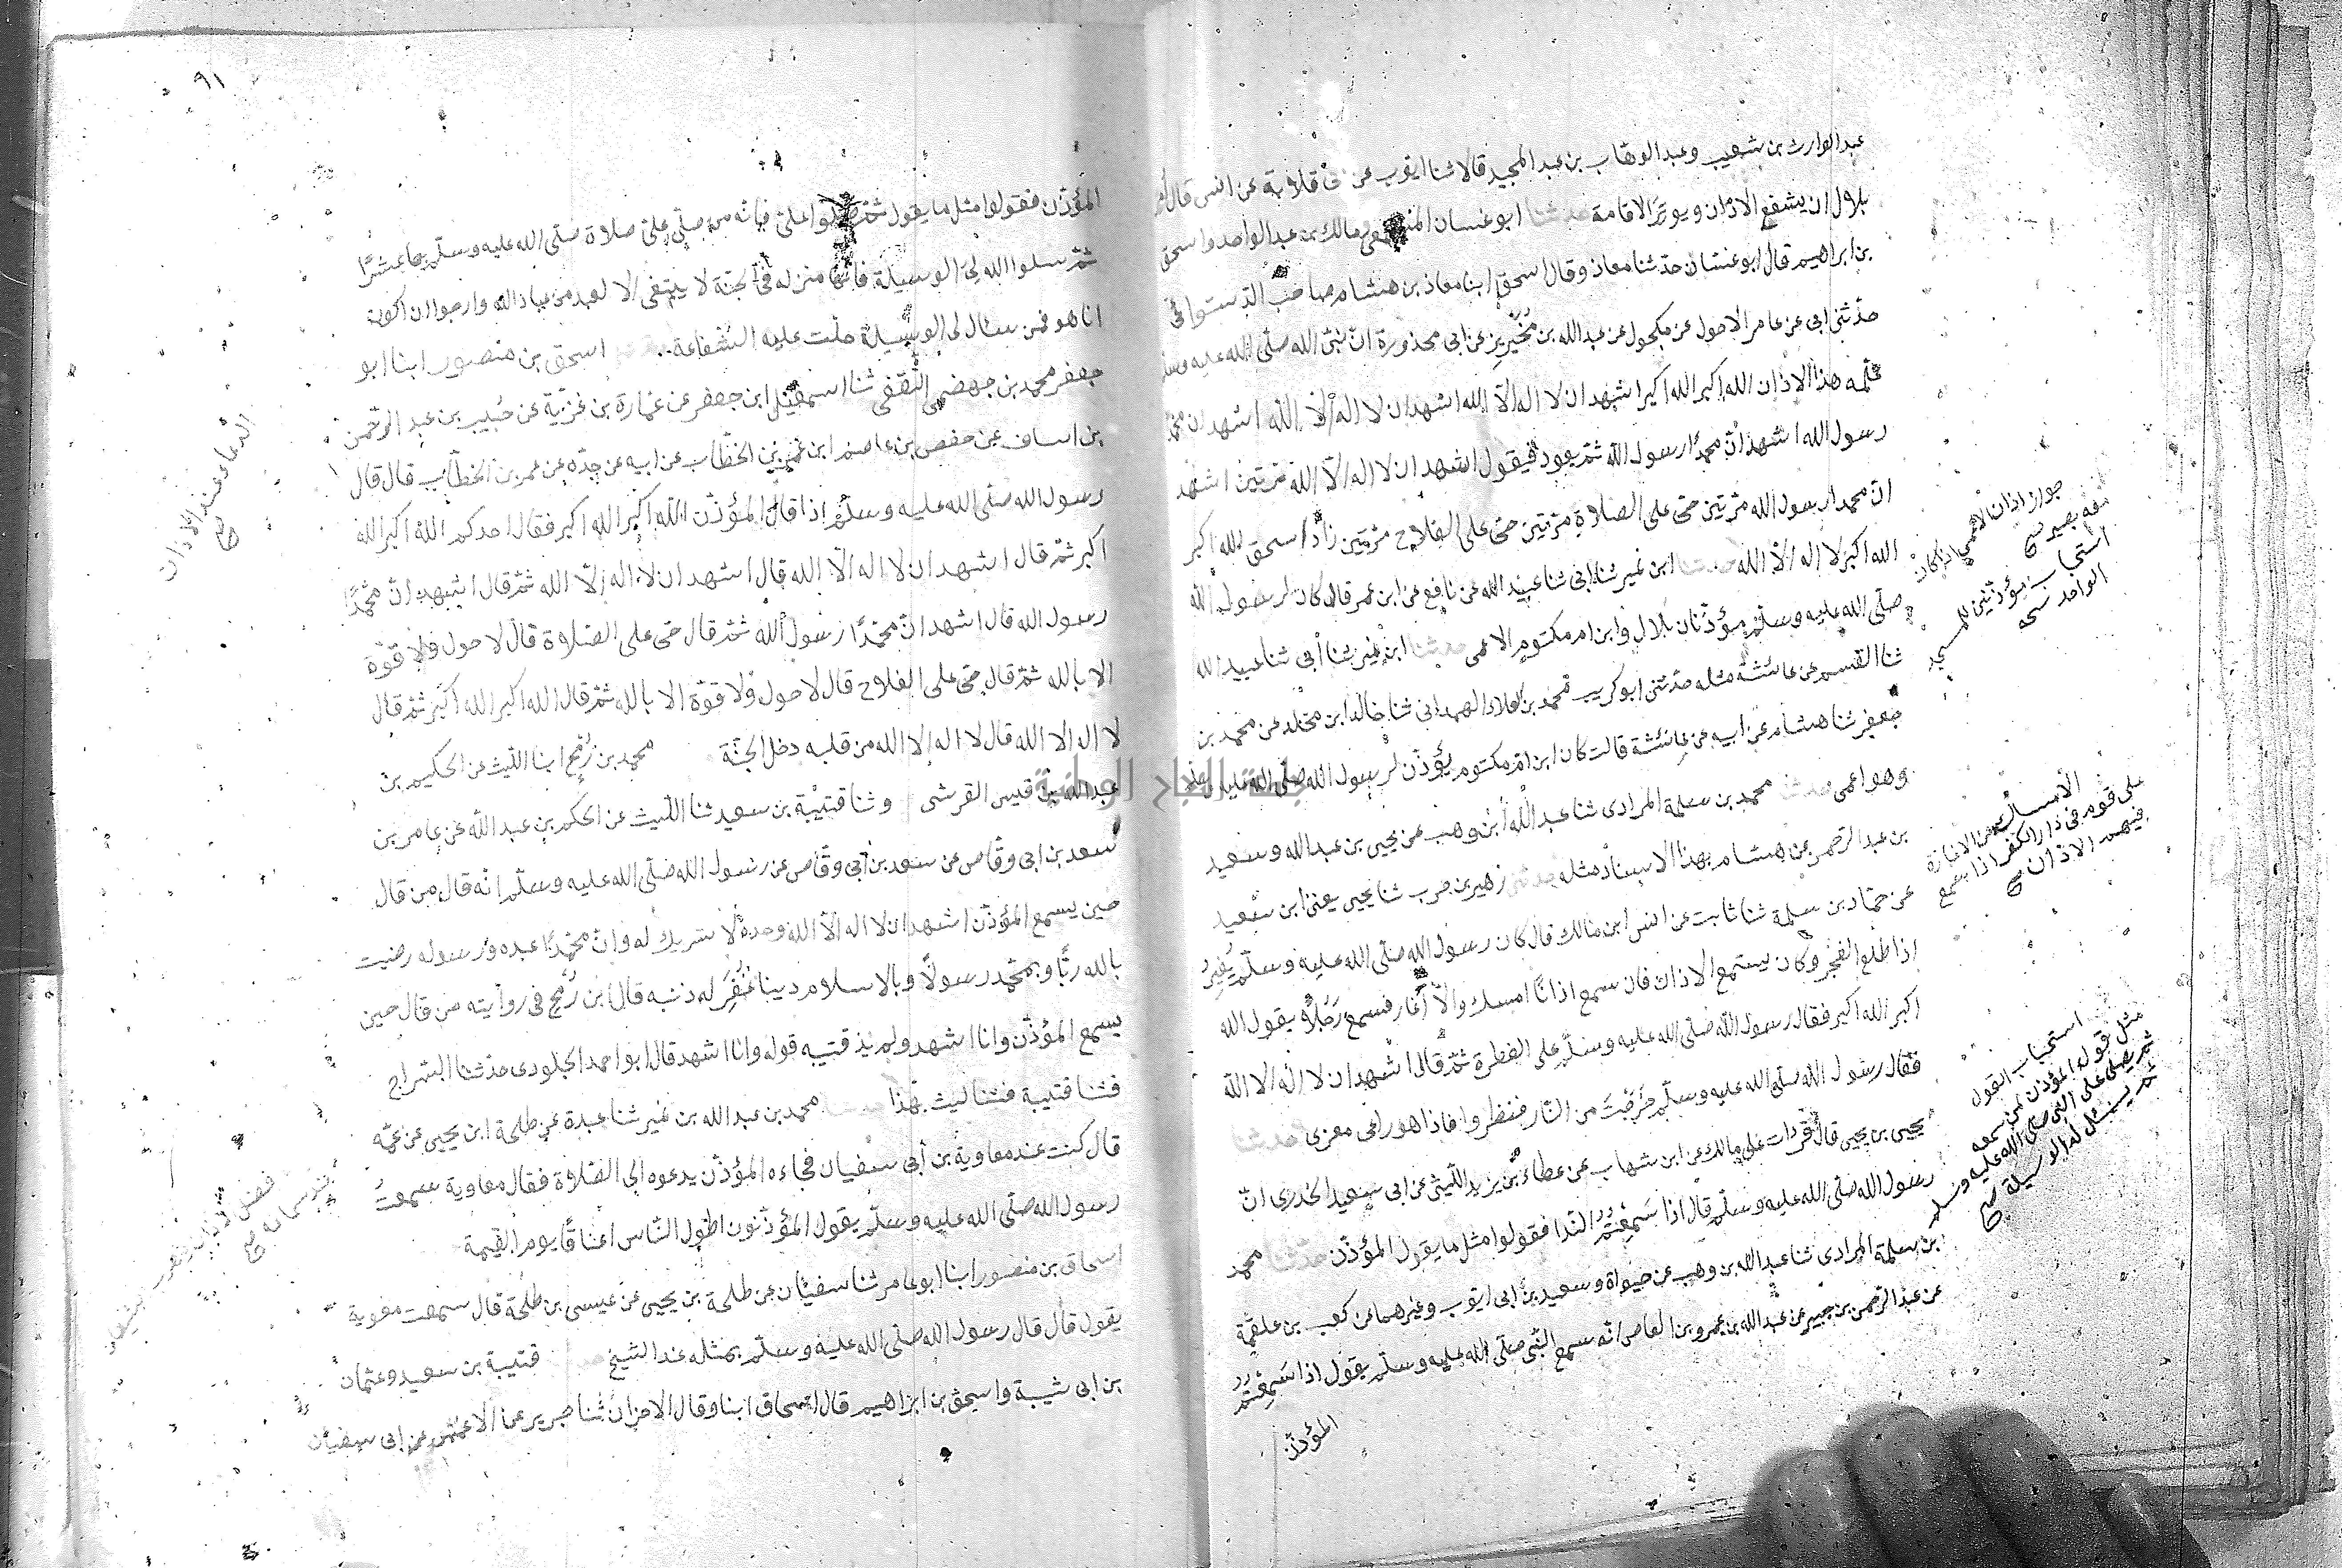 عبد الوارث بن سعيد وعبد الوهاب بن عبد المجيد قالا ثنا ايوب عن ابى قلابة عن انس قال امر
بلال ان يشفع الاذان ويوتر الاقامة حدثنا ابو غسان المسمعى مالك بن عبد الواحد واسحق
بن ابراهيم قال ابو غسان حدثنا معاذ وقال اسحق ابنا معاذ بن هشام صاحب الدستوائى
حدثنى ابى عن عامر الاحول عن مكحول عن عبد الله بن محيريز عن ابى محذورة ان نبى الله صلى الله عليه وسلم
علمه هذا الاذان الله اكبر الله اكبر اشهد ان لا اله الا الله اشهد ان لا اله الا الله اشهد ان محمدا
رسول الله اشهد ان محمدا رسول الله ثم يعود فيقول اشهد ان لا اله الا الله مرتين اشهد
ان محمدا رسول الله مرتين حى على الصلاة مرتين حى على الفلاح مرتين زاد اسحق الله اكبر
الله اكبر لا اله الا الله حدثنا ابن نمير ثنا ابى ثنا عبيد الله عن نافع عن ابن عمر قال كان لرسول الله
صلى الله عليه وسلم مؤذنان بلال وابن ام مكتوم الاعمى حدثنا ابن نمير ثنا ابى ثنا عبيد الله
ثنا القسم عن عائشة مثله حدثنى ابو كريب محمد بن العلاء الهمدانى ثنا خالد ابن مخلد عن محمد بن
جعفر ثنا هشام عن ابيه عن عائشة قالت كان ابن ام مكتوم يؤذن لرسول الله صلى الله عليه وسلم
وهو اعمى حدثنا محمد بن سلمة المرادى ثنا عبد الله ابن وهب عن يحيى بن عبد الله وسعيد
بن عبد الرحمن عن هشام بهذا الاسناد مثله حدثنى زهير بن حرب ثنا يحيى يعنى ابن سعيد
عن حماد بن سلمة ثنا ثابت عن انس ابن مالك قال كان رسول الله صلى الله عليه وسلم يغير
اذا طلع الفجر وكان يستمع الاذان فان سمع اذانا امسك والا اغار فسمع رجلا يقول الله
اكبر الله اكبر فقال رسول الله صلى الله عليه وسلم على الفطرة ثم قال اشهد ان لا اله الا الله
فقال رسول الله صلى الله عليه وسلم خرجت من النار فنظروا فاذا هو راعى معزى حدثنا
يحيى بن يحيى قال قرات على مالك عن ابن شهاب عن عطاء بن يزيد الليثى عن ابى سعيد الخدرى ان
رسول الله صلى الله عليه وسلم قال اذا سمعتم الندا فقولوا مثل ما يقول المؤذن حدثنا محمد
بن سلمة المرادى ثنا عبد الله بن وهب عن حيواة وسعيد بن ابى ايوب وغيرهما عن كعب بن علقمة
عن عبد الرحمن بن جبير عن عبد الله بن عمرو بن العاص انه سمع النبى صلى الله عليه وسلم يقول اذا سمعتم
المؤذن
جواز اذان الاعمى اذا كان
معه بصير صح
استحباب مؤذنين للمسجد
الواحد صح
الامساك عن الاغارة
على قوم فى دار الكفر اذا سمع
فيهم الاذان صح
استحباب القول
مثل قول المؤذن لمن سمعه
ثم يصلى على النبى صلى الله عليه وسلم
ثم يسئل له الوسيلة صح
٩١
المؤذن فقولوا مثل ما يقول ثم صلوا على فانه من صلى على صلاة صلى الله عليه وسلم بها عشرا
ثم سلوا الله لى الوسيلة فانها منزله فى الجنة لا ينبغى الا لعبد من عباد الله وارجوا ان اكون
انا هو فمن سال لى الوسيلة حلت عليه الشفاعة اسحق بن منصور ابنا ابو
جعفر محمد بن جهضم الثقفى ثنا اسمعيل ابن جعفر عن عمارة بن غزية عن خبيب بن عبد الرحمن
بن اساف عن حفص بن عاصم ابن عمر بن الخطاب عن ابيه عن جده عن عمر بن الخطاب قال قال
رسول الله صلى الله عليه وسلم اذا قال المؤذن الله اكبر الله اكبر فقال احدكم الله اكبر الله
اكبر ثم قال اشهد ان لا اله الا الله قال اشهد ان لا اله الا الله ثم قال اشهد ان محمدا
رسول الله قال اشهد ان محمدا رسول الله ثم قال حى على الصلاة قال لا حول ولا قوة
الا بالله ثم قال حى على الفلاح قال لا حول ولا قوة الا بالله ثم قال الله اكبر الله اكبر ثم قال
لا اله الا الله قال لا اله الا الله من قلبه دخل الجنة محمد بن رمح ابنا الليث عن الحكيم بن
عبد الله بن قيس القرشى وثنا قتيبة بن سعيد ثنا الليث عن الحكم بن عبد الله عن عامر بن
سعد بن ابى وقاص عن سعد بن ابى وقاص عن رسول الله صلى الله عليه وسلم انه قال من قال
حين يسمع المؤذن اشهد ان لا اله الا الله وحده لا شريك له وان محمدا عبده ورسوله رضيت
بالله ربا وبمحمد رسولا وبالاسلام دينا غفر له ذنبه قال ابن رمح فى روايته من قال حين
يسمع المؤذن وانا اشهد ولم يذ قتيبه قوله وانا اشهد قال ابو احمد الجلودى حدثنا السراج
فثنا قتيبة فثنا ليث بهذا حدثنا محمد بن عبد الله بن نمير ثنا عبدة عن طلحة ابن يحيى عن عمه
قال كنت عند معاوية بن ابى سفيان فجاءه المؤذن يدعوه الى الصلاة فقال معاوية سمعت
رسول الله صلى الله عليه وسلم يقول المؤذنون اطول الناس اعناقا يوم القيمة
اسحاق بن منصور ابنا ابو عامر ثنا سفيان عن طلحة بن يحيى عن عيسى بن طلحة قال سمعت معوية
يقول قال قال رسول الله صلى الله عليه وسلم بمثله عند الشيخ قتيبة بن سعيد وعثمان
بن ابى شيبة واسحق بن ابراهيم قال اسحاق ابنا وقال الاخران ثنا جرير عن الاعمش عن ابى سفيان
الدعاء عند الاذان
صح
فضل الاذان
عند سماعه صح
مجلة النجاح الوطنية